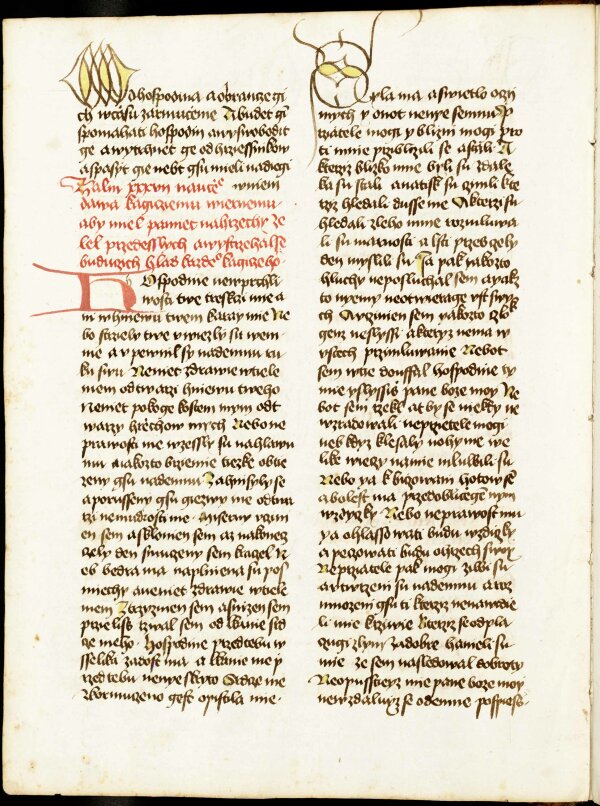 Od hospodina a obrancze gi
ch wczasu zarmucenie A budet gi
spomahati hospodin a wyswobodit
ge a wytrhnet ge od hrziessnikow
a spasyt ge nebt gsu mieli nadiegi
Zalm xxxvii
dawa kagiciemu wiernemu
aby miel pamiet na hrziechy ze
lel przedesslych a wystrzehal se
buducich hlas kazdeho kagicieho
Hospodine neprzichyli
wosti twe treskci mie a
ni w hniewu twem karay mie Ne
bo strziely twe uwiezly su wem
mie a upewnil sy nade mnu ru
ku swu Nemiet zdrawie w tiele
mem od twarzi hniewu tweho
Nemiet pokoge kostem mym od t
warzy hrziechow mych Nebo ne
prawosti me wzessly su na hlawu
mu a iakozto brziemie tiezke obtie
zeny gsu nade mnu Zahnsyly se
a poruseny gsu giezwy me od twa
rzi nemudrosti me
en sem a sklonien sem az nakonecz
cely den smuczeny sem kragel N
eb bedra ma naplniena su pos
miechy a neniet zdrawie w tiele
mem Ztryznien sem a snizen sem
przielis rziwal sem od lkanie srd
ce meho Hospodine przed tebu w
sselika zadost ma a lkanie me p
rzed tebu nenye skryto Srdce me
zkormuceno gest opustila mie
syla ma a swietlo oczi
mych y onot nenye se mnu P
rzietele mogi y blizni mogi pro
ti mnie prziblizili se a stali A
kterzi blizko mne byli su zdale
ka su stali a nasile su czinili kte
rzyz hledali dusse me A kterzi su
hledali zleho mnie rozmluwa
li su marnosti a lsti przes czely
den myslili su Ja pak iakozto
hluchy neposluchal sem a yakz
to niemy neotwierage ust swyc
ch A uczinien sem yakozto czlk
genz neslyssi a kteryz nema w
ustech przimluwanie Nebot
sem w tie doufal hospodine ty
mie uslyssis pane boze moy Ne
bot sem rzekl at by se niekdy ne
wzradowali neprzietele mogi
neb kdyz klesaly nohy me we
like wieczy na mie mluwili su
Nebo ya k biczowani hotow se
a bolest ma przed obliczegem mym
wzdyczky Nebo neprawost mu
ya ohlassowati budu wzdiczky
a peczowati budu o hrziech swoy
Neprzietele pak mogi ziwi su
a utwrzeni su nade mnu a roz
mnozeni gsu ti kterziz nenawidie
li mie krziwie kterziz se odpla
cugi zlym za dobre hanieli su
mie ze sem nasledowal dobroty
Neopusstiegz mie pane boze moy
neuzdaluyz se ode mne pospiess